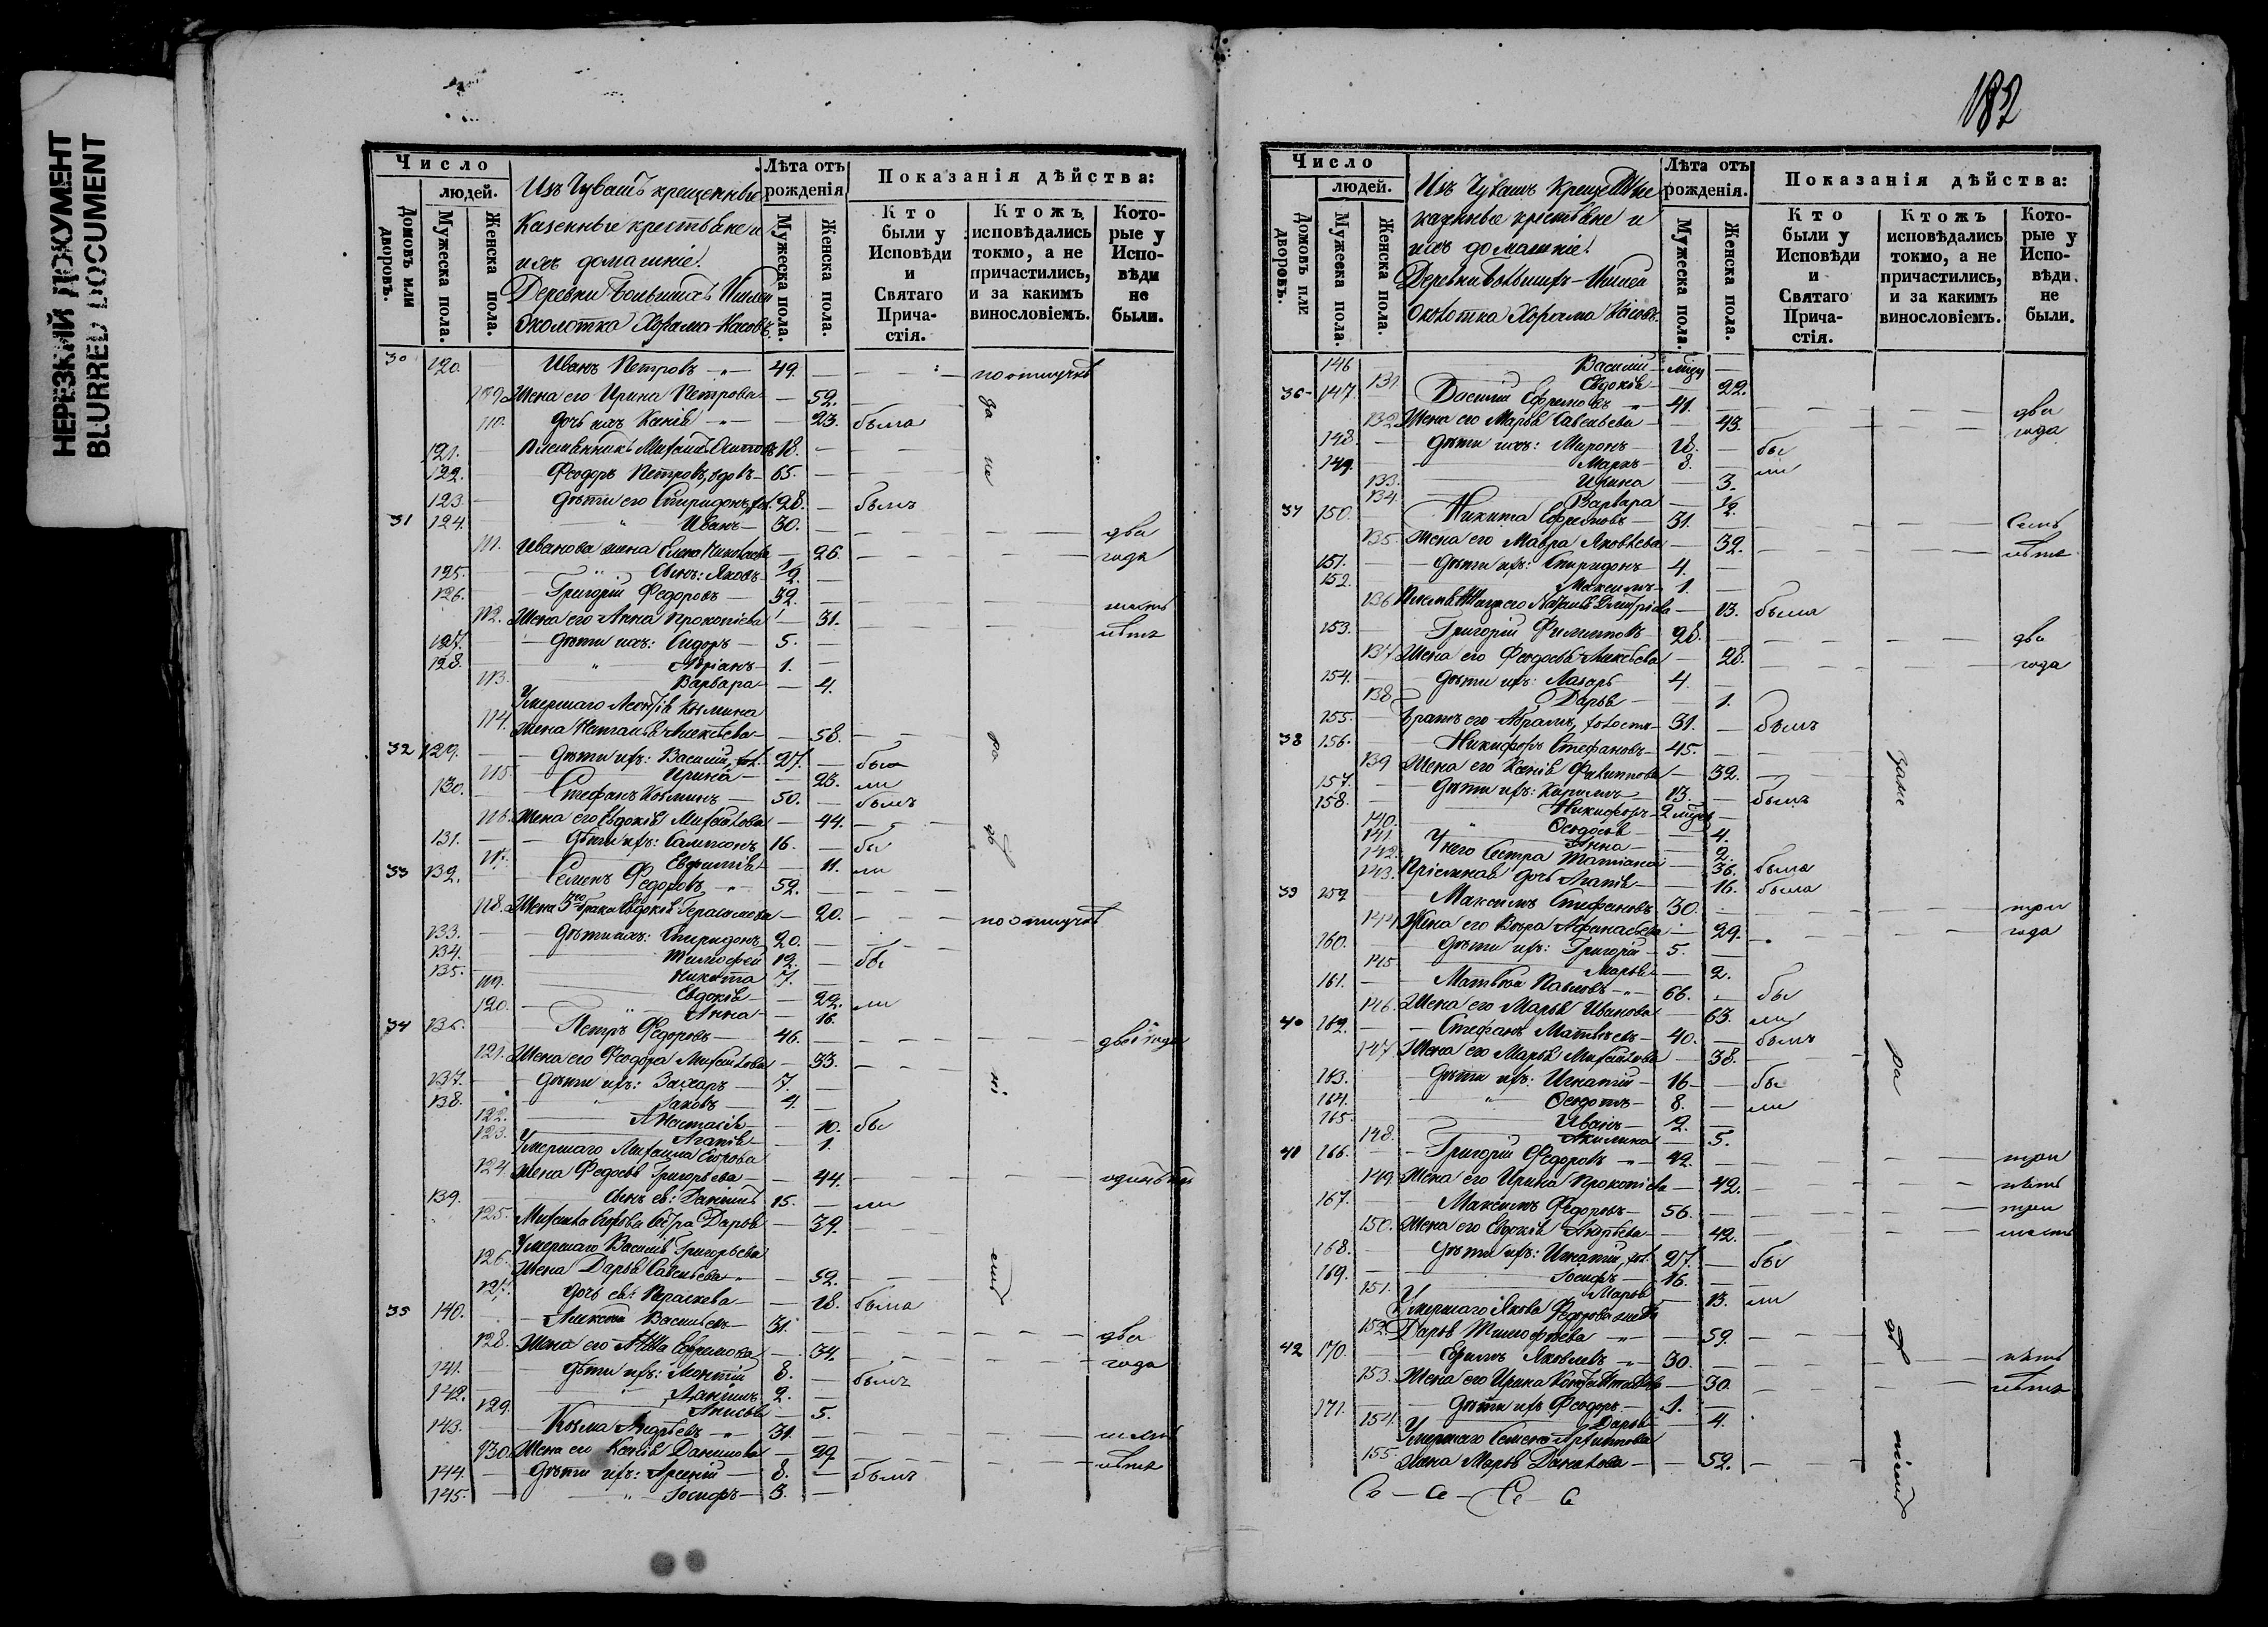 НЕРЕЗКИЙ ДОКУМЕНТ
BLURRED DOCUMENT
Число
людей.
Домовъ или дворовъ.
Мужеска пола.
Женска пола.
Изъ Чувашъ крещенные
Казенные крестьяне и
ихъ домашніе:
Деревни
околотка
Лѣта отъ рожденія
Мужеска пола.
Женска пола.
Показанія дѣйства:
Кто были у Исповѣди и Святаго Прича-стія.
Ктожъ исповѣдались токмо, а не причастились, и за какимъ винословіемъ.
Кото-рые у Испо-вѣди не были.
30 120. Иванъ Петровъ 49. по отлучкѣ
109. Жена его Ирина Петрова 52.
110. дочь ихъ Ксенія 23. была
121. Племянникъ 18.
122. Феодоръ Петровъ, вдовъ 65.
123. дѣти его Спиридонъ, 28. былъ
31 124. Иванъ 30. два
111. Иванова жена Елена Николаева 26. года
125. Сынъ: Яковъ 1/2.
126. Григорій Федоровъ 32. шесть
112. Жена его Анна Прокопіева 31. лѣтъ
127. дѣти ихъ: Сидоръ 5.
128. Адріанъ 1.
113. Варвара 4.
Умершаго Леонтія Козмина
114. Жена Наталья Алексѣева 58.
32 129. дѣти ихъ: Василій, 27. бы
115. Ирина 23. ли
130. Стефанъ Козминъ 50. былъ
116. Жена его Евдокія Михайлова 44.
131. дѣти ихъ: Сампсонъ 16. бы
117. Евфимія 11. ли
33 132. Семенъ Федоровъ 52.
118. Жена 3го брака Евдокія Герасимова 20. по отлучкѣ
133. дѣти ихъ: Спиридонъ 20.
134. Тимофей 12. бы
135. Никита 7.
119. Евдокія 22. ли
120. Анна 16.
34 136. Петръ Федоровъ 46. два года
121. Жена его Феодора Михайлова 33.
137. дѣти ихъ: Захаръ 7.
138. Іаковъ 4.
122. Анастасія 10. бы
123. Агапія 1.
Умершаго Михаила Егорова
124. Жена Федосья Григорьева 44. одинъ
139. сынъ ея: Даніилъ 15. ли
125. Михайла Егорова сестра Дарья 39.
Умершаго Василія Григорьева
126. Жена Дарья Савельева 52.
127. дочь ея: Параскева 18. была
35 140. Алексѣй Васильевъ 31. два
128. Жена его Анна Ефремова 34. года
141. дѣти ихъ: 8. былъ
142. 2.
129. Анисья 5.
143. Козма Андреевъ 31. шесть
130. Жена его Ксенія Данилова 29. лѣтъ
144. дѣти ихъ: Арсеній 8. былъ
145. Іосифъ 3.
182
Число
людей.
Домовъ или дворовъ.
Мужеска пола.
Женска пола.
Изъ Чувашъ крещенные
казенные крестьяне и
ихъ домашніе:
Деревни
Околотка
Лѣта отъ рожденія.
Мужеска пола.
Женска пола.
Показанія дѣйства:
Кто были у Исповѣди и Святаго Прича-стія.
Ктожъ исповѣдались токмо, а не причастились, и за какимъ винословіемъ.
Кото-рые у Испо-вѣди не были.
146 Василій
131. Евдокія 22.
36 147. Василій Ефремовъ 41. два
132. Жена его Марья Савельева 43. года
148. дѣти ихъ: Миронъ 18. бы
149. Маркъ 8. ли
133. Ирина 3.
134. Варвара 1/2.
37 150. Никита Ефремовъ 31. семь
135. Жена его Мавра Яковлева 32. лѣтъ
151. дѣти ихъ: Спиридонъ 4.
152. Максимъ 1.
136. Племянница его Наталья Дмитріева 13. была
153. Григорій Филипповъ 28. два
137. Жена его Феодосья Алексѣева 28. года
154. дѣти ихъ: Лазарь 4.
138. Дарья 1.
155. Братъ его Абрамъ, холостъ 31. былъ
38 156. Никифоръ Стефановъ 45.
139. Жена его Ксенія Филиппова 32.
157. дѣти ихъ: 13. былъ
158. Никифоръ 2
140. Феодосья 4.
141. Анна 2.
142. У него сестра Татіана 36. была
143. Пріемная дочь Агапія 16. была
39 159 Максимъ Стефановъ 30. три
144. Жена его Вѣра Афанасьева 29. года
160. дѣти ихъ: Григорій 5.
145. Марья 2.
161. Матвѣй Павловъ 66. бы
146. Жена его Марья Иванова 63. ли
40 162. Стефанъ Матвѣевъ 40. былъ
147. Жена его Марья Михайлова 38.
163. дѣти ихъ: Игнатій 16 бы
164. Феодотъ 8. ли
165. Иванъ 2.
148. Акилина 5.
41 166. Григорій Федоровъ 42. три
149. Жена его Ирина Прокопіева 42.
167. Максимъ Федоровъ 56. три
150. Жена его Евдокія Андреева 42.
168. дѣти ихъ: Игнатій, 27. бы
169. Іосифъ 16.
151. Марья 13. ли
Умершаго Якова Федорова жена
152. Дарья Тимофѣева 59.
42 170. Ефимъ Яковлевъ 30. пять
153. Жена его Ирина Константинова 30. лѣтъ
171. дѣти ихъ Феодоръ 1.
154. Дарья 4.
Умершаго Семена Архипова
155. Жена Марья Данилова 52.